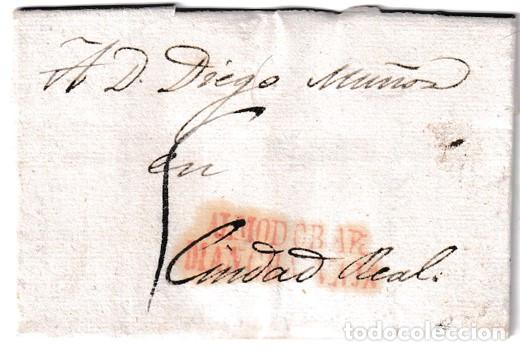 A D. Diego Muñoz
en
ALMODOBAR
Ciudad Real.
todocoleccion